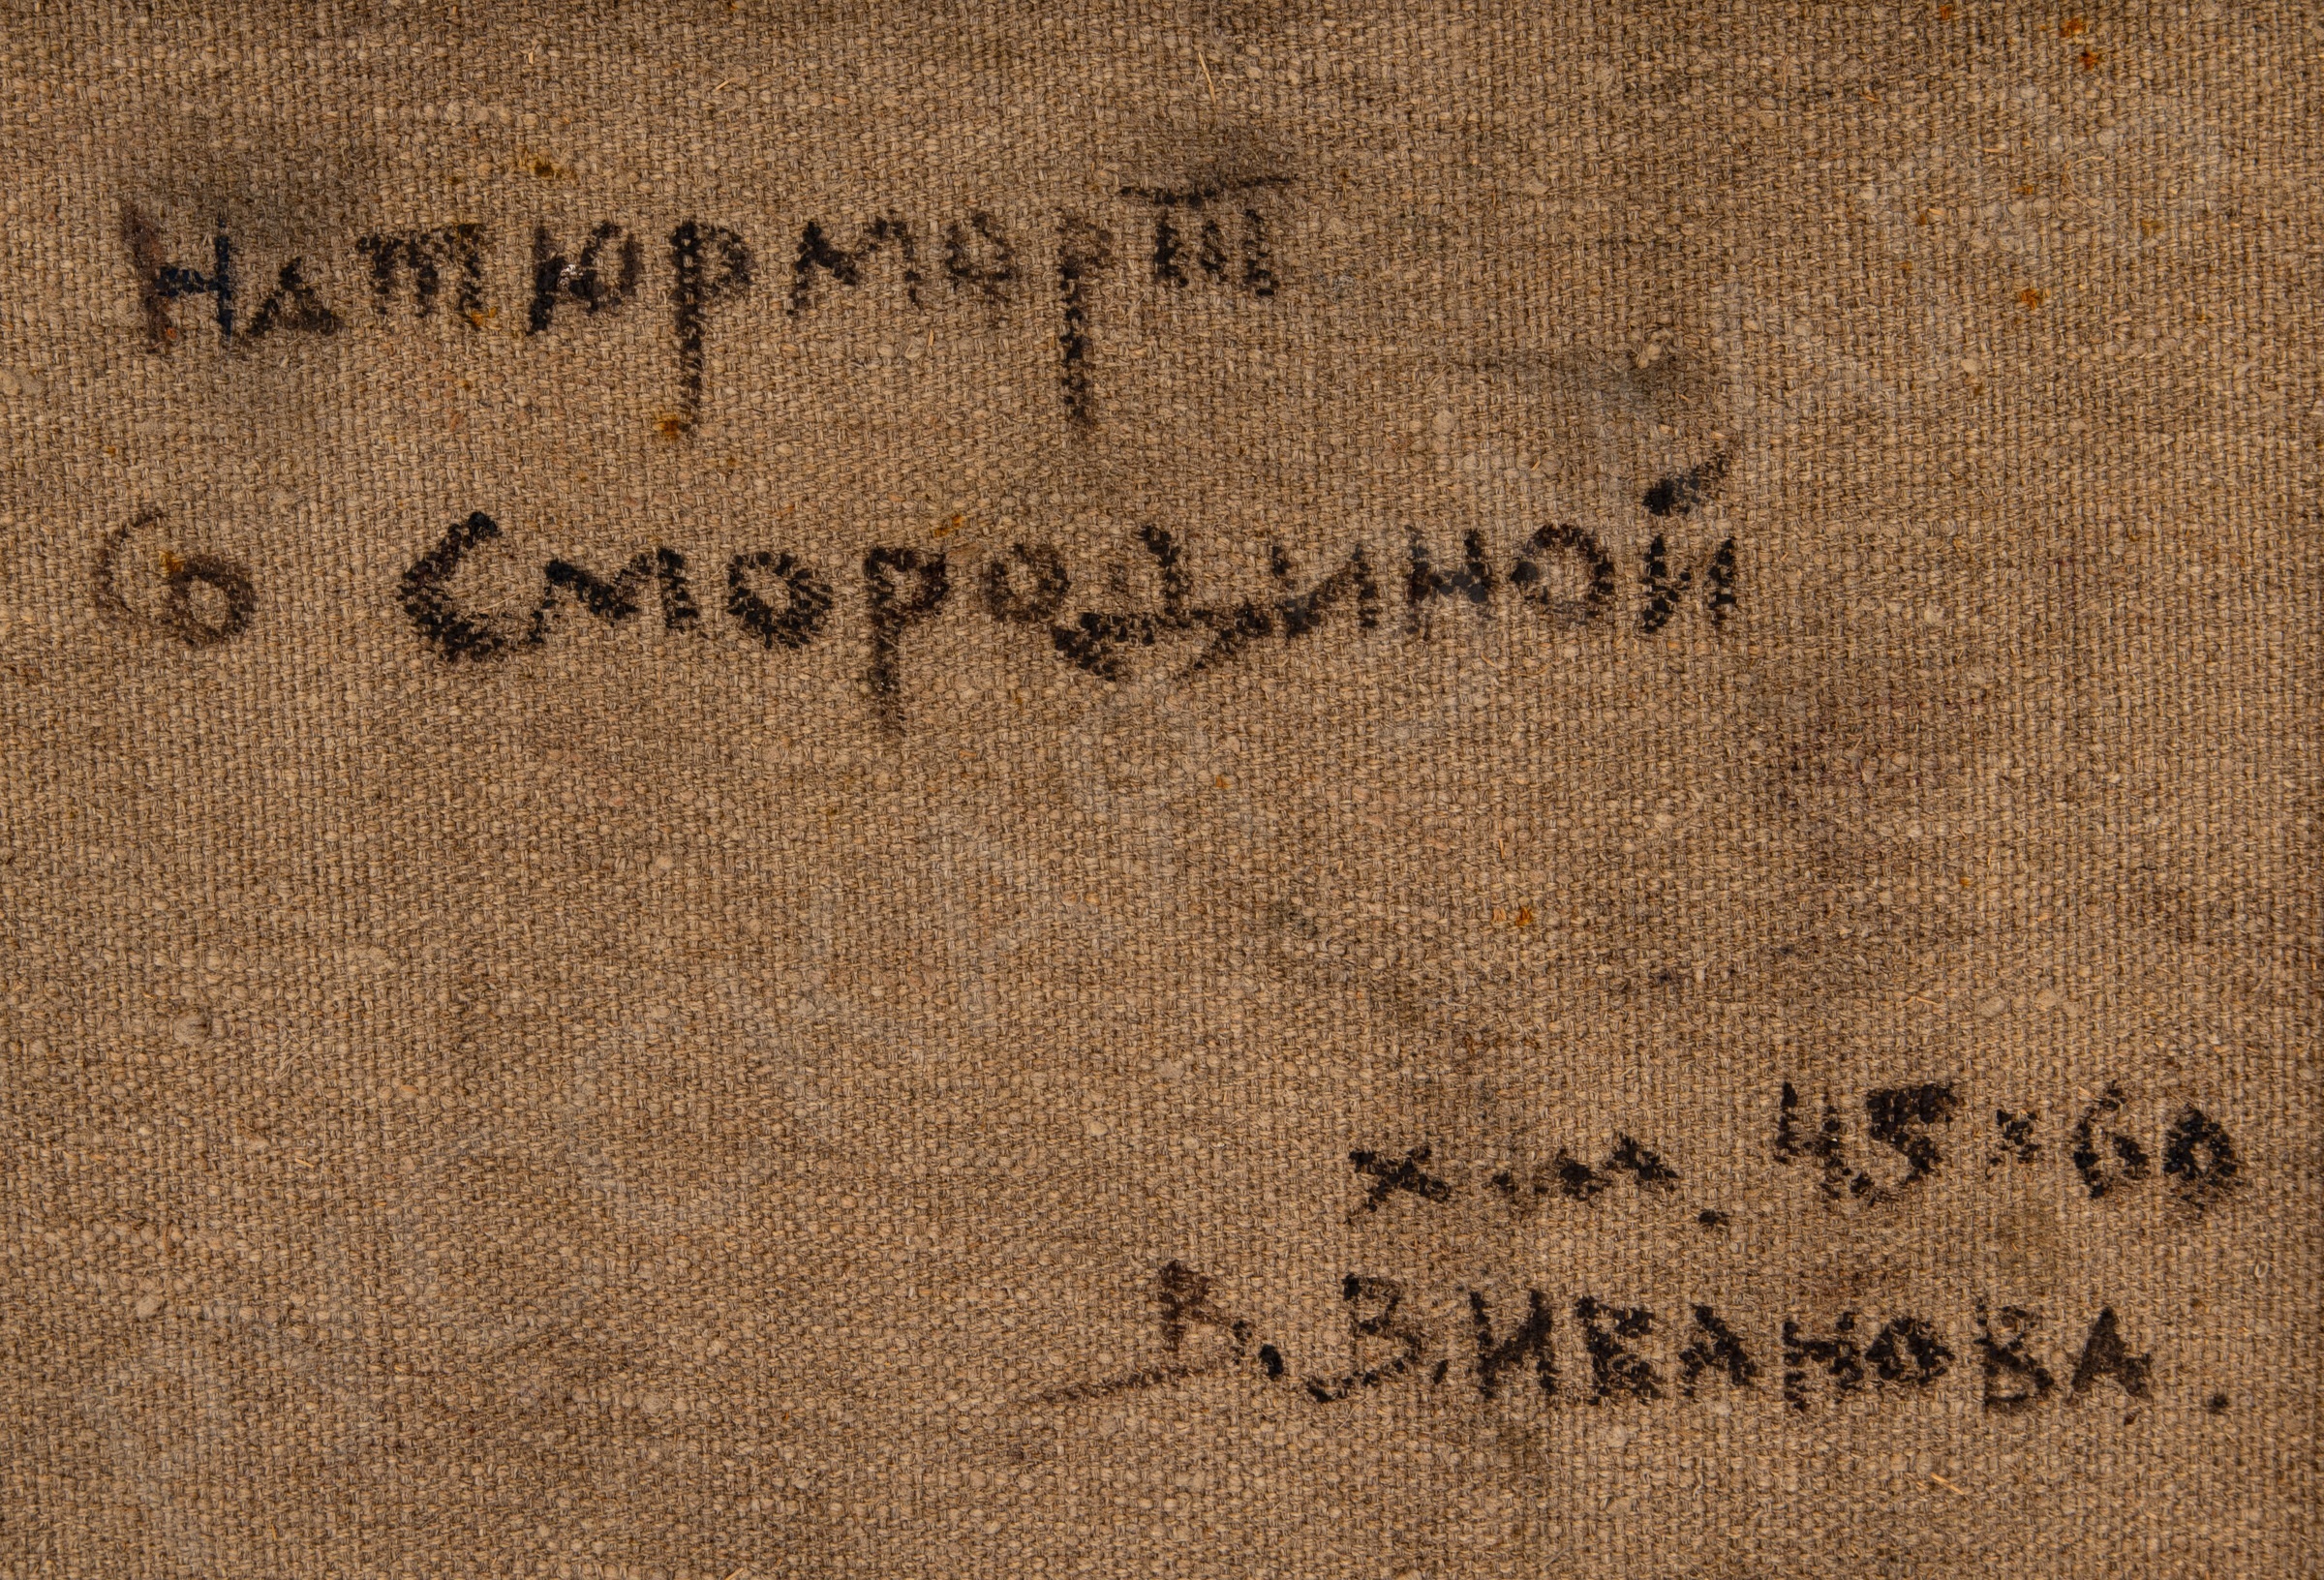 Натюрморт
со Смородиной
х.м. 45×60
В. В. ИВАНОВА.